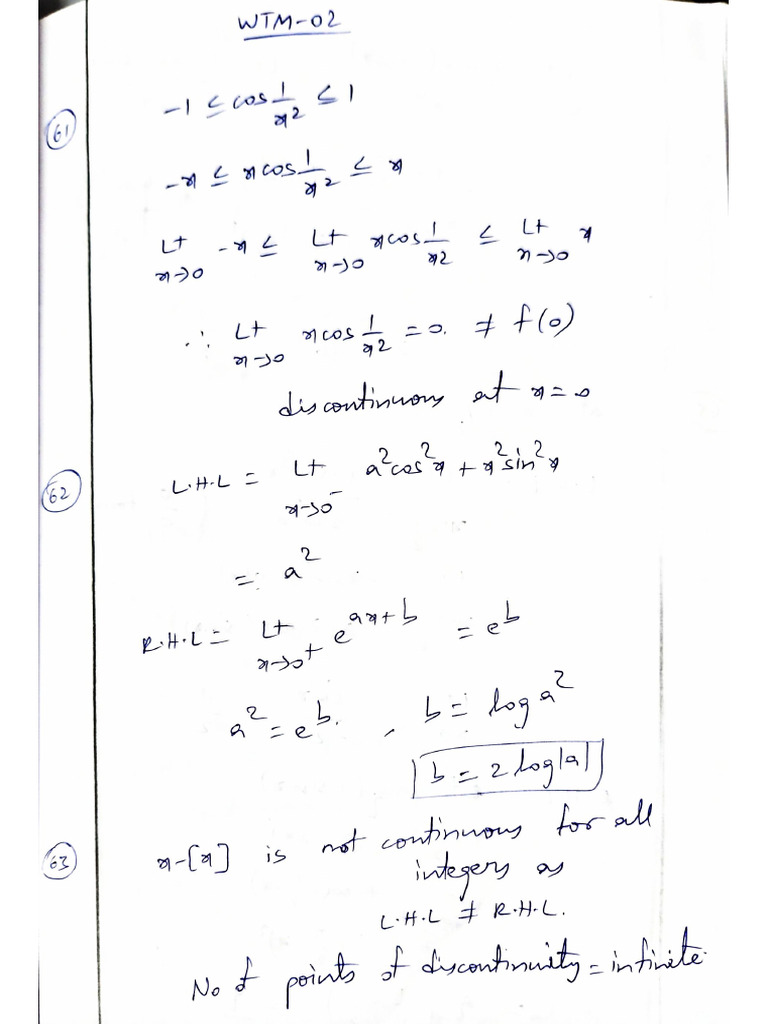 WTM-02
61
-1 ≤ cos 1/x² ≤ 1
-x ≤ x cos 1/x² ≤ x
Lt x→0 -x ≤ Lt x→0 x cos 1/x² ≤ Lt x→0 x
∴ Lt x→0 x cos 1/x² = 0. ≠ f(0)
discontinuous at x=0
62
L.H.L = Lt x→0⁻ a²cos²x + x²sin²x
= a²
R.H.L = Lt x→0⁺ e^(ax+b) = e^b
a² = e^b. , b = log a²
b = 2 log|a|
63
x-[x] is not continuous for all
integers as
L.H.L ≠ R.H.L.
No of points of discontinuity = infinite.